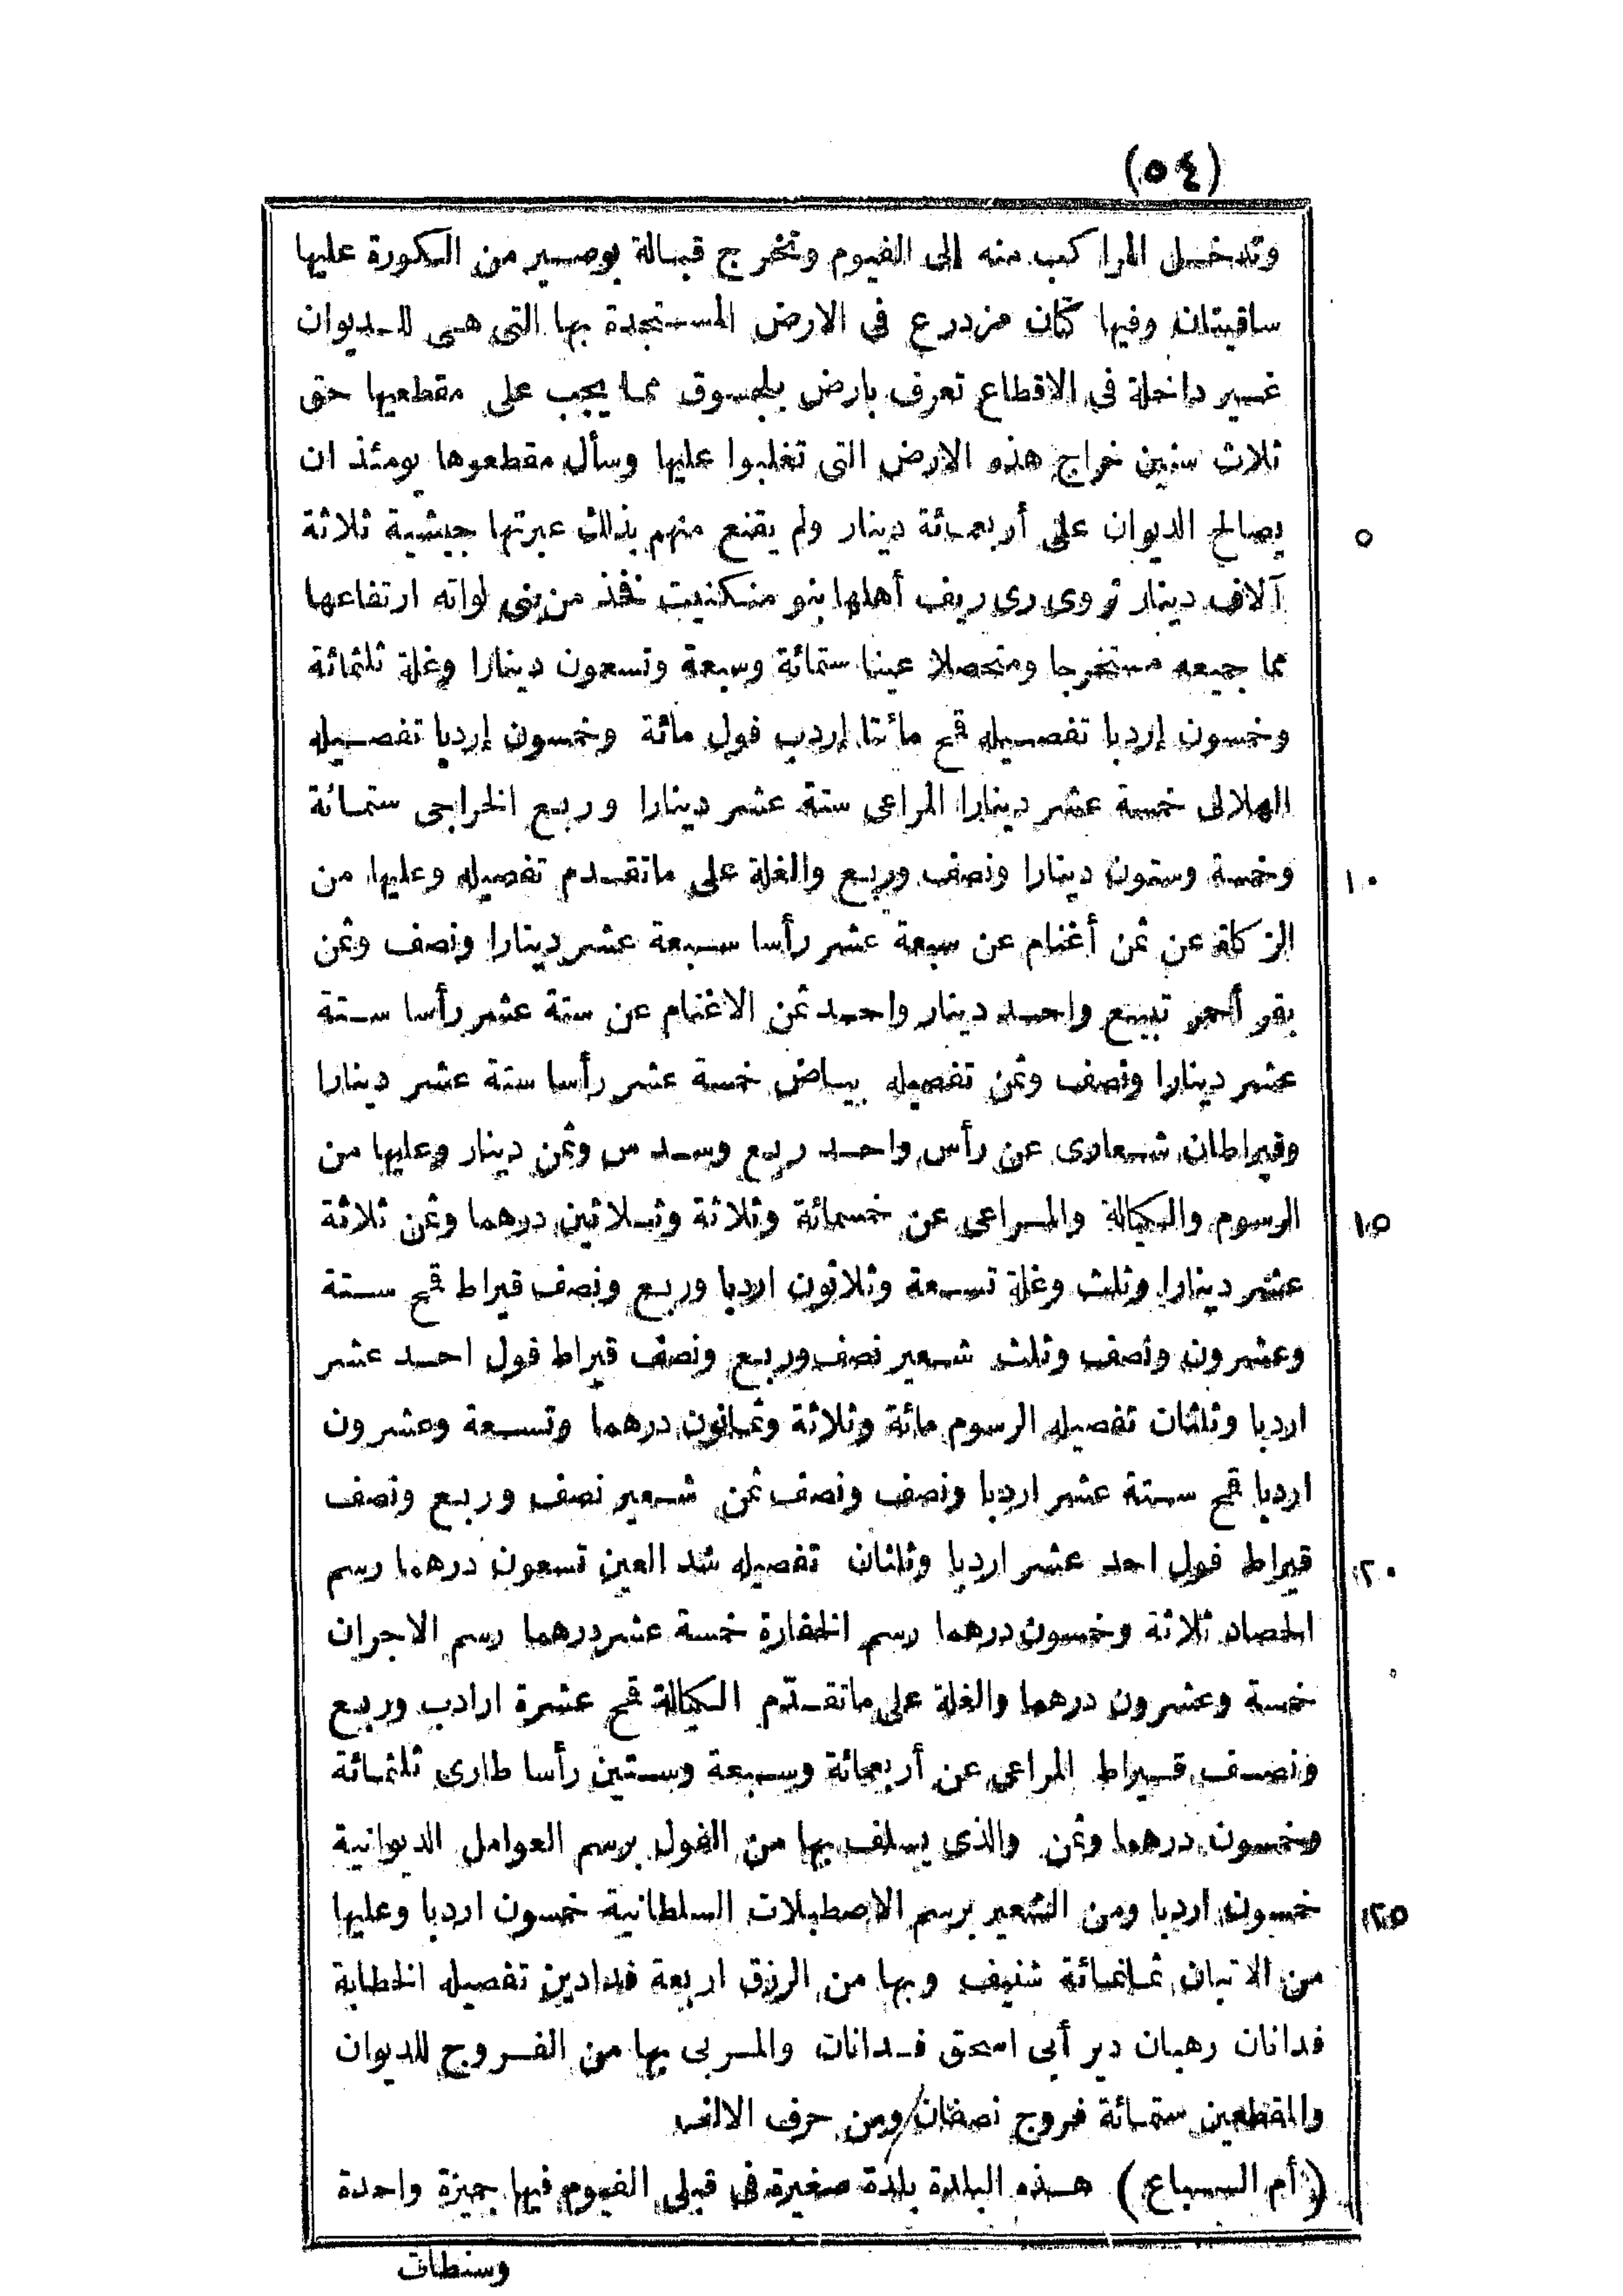 (٥٤)
وتدخل المراكب منه الى الفيوم وتخرج قبالة بوصير من الكورة عليها
ساقيتان وفيها كان مزدرع فى الارض المستجدة بها التى هى للديوان
غير داخلة فى الاقطاع تعرف بارض بلجسوق مما يجب على مقطعيها حق
ثلاث سنين خراج هذه الارض التى تغلبوا عليها وسأل مقطعوها يومئذ ان
٥ يصالح الديوان على أربعمائة دينار ولم يقنع منهم بذلك عبرتها جيشية ثلاثة
آلاف دينار تروى رى ريف أهلها بنو منكنيت فخذ من بنى لواته ارتفاعها
مما جميعه مستخرجا ومتحصلا عينا ستمائة وسبعة وتسعون دينارا وغلة ثلثمائة
وخمسون إردبا تفصيله قمح مائتا إردب فول مائة وخمسون إردبا تفصيله
الهلالى خمسة عشر دينارا المراعى ستة عشر دينارا وربع الخراجى ستمائة
١٠ وخمسة وستون دينارا ونصف وربع والغلة على ماتقدم تفصيله وعليها من
الزكاة عن ثمن أغنام عن سبعة عشر رأسا سبعة عشر دينارا ونصف وثمن
بقر أحمر تبيع واحد دينار واحد ثمن الاغنام عن ستة عشر رأسا ستة
عشر دينارا ونصف وثمن تفصيله بياض خمسة عشر رأسا ستة عشر دينارا
وقيراطان شعارى عن رأس واحد ربع وسدس وثمن دينار وعليها من
١٥ الرسوم والكيالة والمراعى عن خمسمائة وثلاثة وثلاثين درهما وثمن ثلاثة
عشر دينارا وثلث وغلة تسعة وثلاثون اردبا وربع ونصف قيراط قمح ستة
وعشرون ونصف وثلث شعير نصف وربع ونصف قيراط فول احد عشر
اردبا وثلثان تفصيله الرسوم مائة وثلاثة وثمانون درهما وتسعة وعشرون
اردبا قمح ستة عشر اردبا ونصف ونصف ثمن شعير نصف وربع ونصف
٢٠ قيراط فول احد عشر اردبا وثلثان تفصيله شد العين تسعون درهما رسم
الحصاد ثلاثة وخمسون درهما رسم الخفارة خمسة عشر درهما رسم الاجران
خمسة وعشرون درهما والغلة على ماتقدّم الكيالة قمح عشرة ارادب وربع
ونصف قيراط المراعى عن أربعمائة وسبعة وستين رأسا طارى ثلثمائة
وخمسون درهما وثمن والذى يسلف بها من الفول برسم العوامل الديوانية
٢٥ خمسون اردبا ومن الشعير برسم الاصطبلات السلطانية خمسون اردبا وعليها
من الاتبان ثمانمائة شنيف وبها من الرزق اربعة فدادين تفصيله الخطابة
فدانان رهبان دير أبى اسحق فدانان والمربى بها من الفروج للديوان
والمقطعين ستمائة فروج نصفان/ومن حرف الالف
(أم السباع) هذه البلدة بلدة صغيرة فى قبلى الفيوم فيها جميزة واحدة
وسنطات